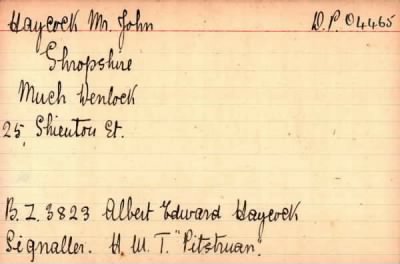 Haycock Mr. John D.P. 04465
Shropshire
Much Wenlock
25, Shienton St.
B.Z. 3823 Albert Edward Haycock
Signaller. H.M.T. "Pitstruan".